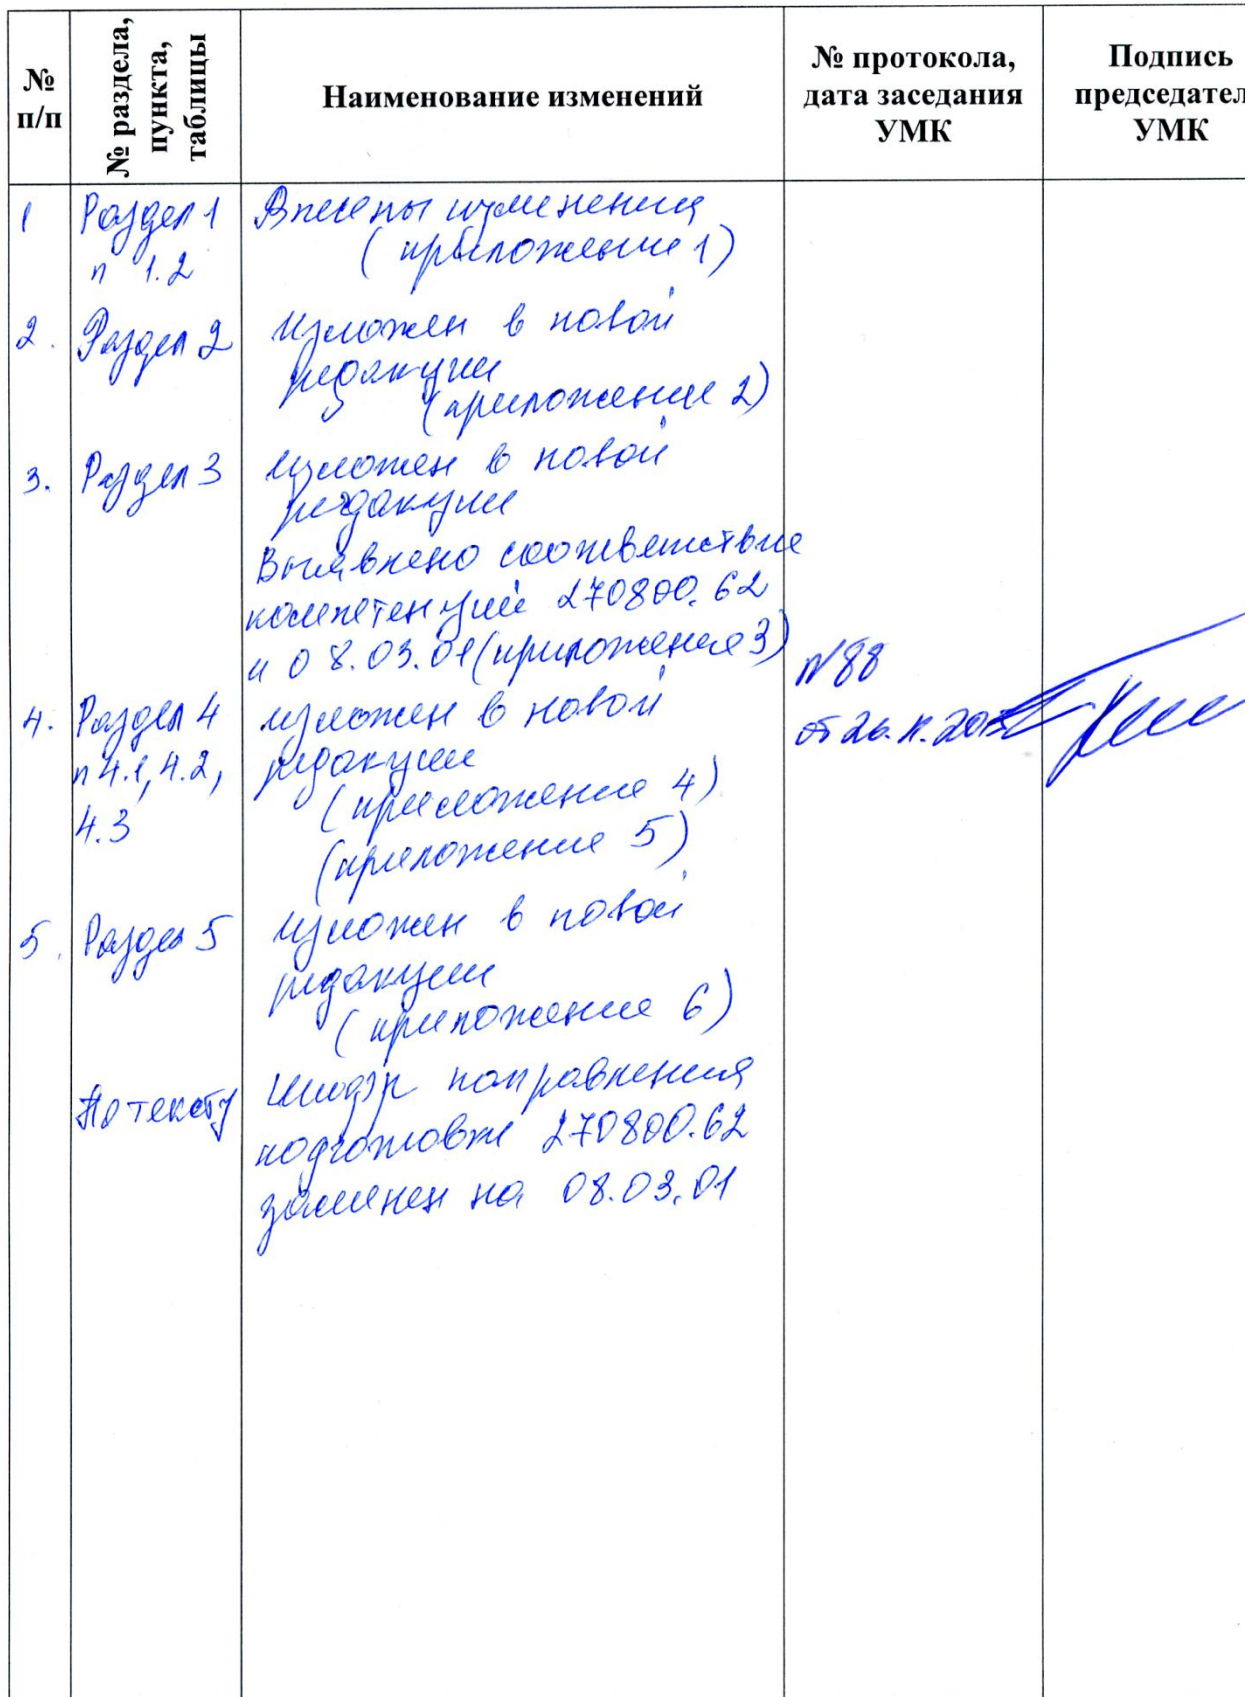 № п/п
№ раздела, пункта, таблицы
Наименование изменений
№ протокола, дата заседания УМК
Подпись председател УМК
1 Раздел 1 Внесены изменения
п 1.2 (приложение 1)
2. Раздел 2 Изложен в новой
редакции
(приложение 2)
3. Раздел 3 Изложен в новой
редакции
Выявлено соответствие
компетенций 270800.62
и 08.03.01 (приложение 3)
№88
4. Раздел 4 изложен в новой
от 26.
п 4.1, 4.2, редакции
4.3 (приложение 4)
(приложение 5)
5. Раздел 5 Изложен в новой
редакции
(приложение 6)
По тексту Шифр направления
подготовки 270800.62
заменен на 08.03.01